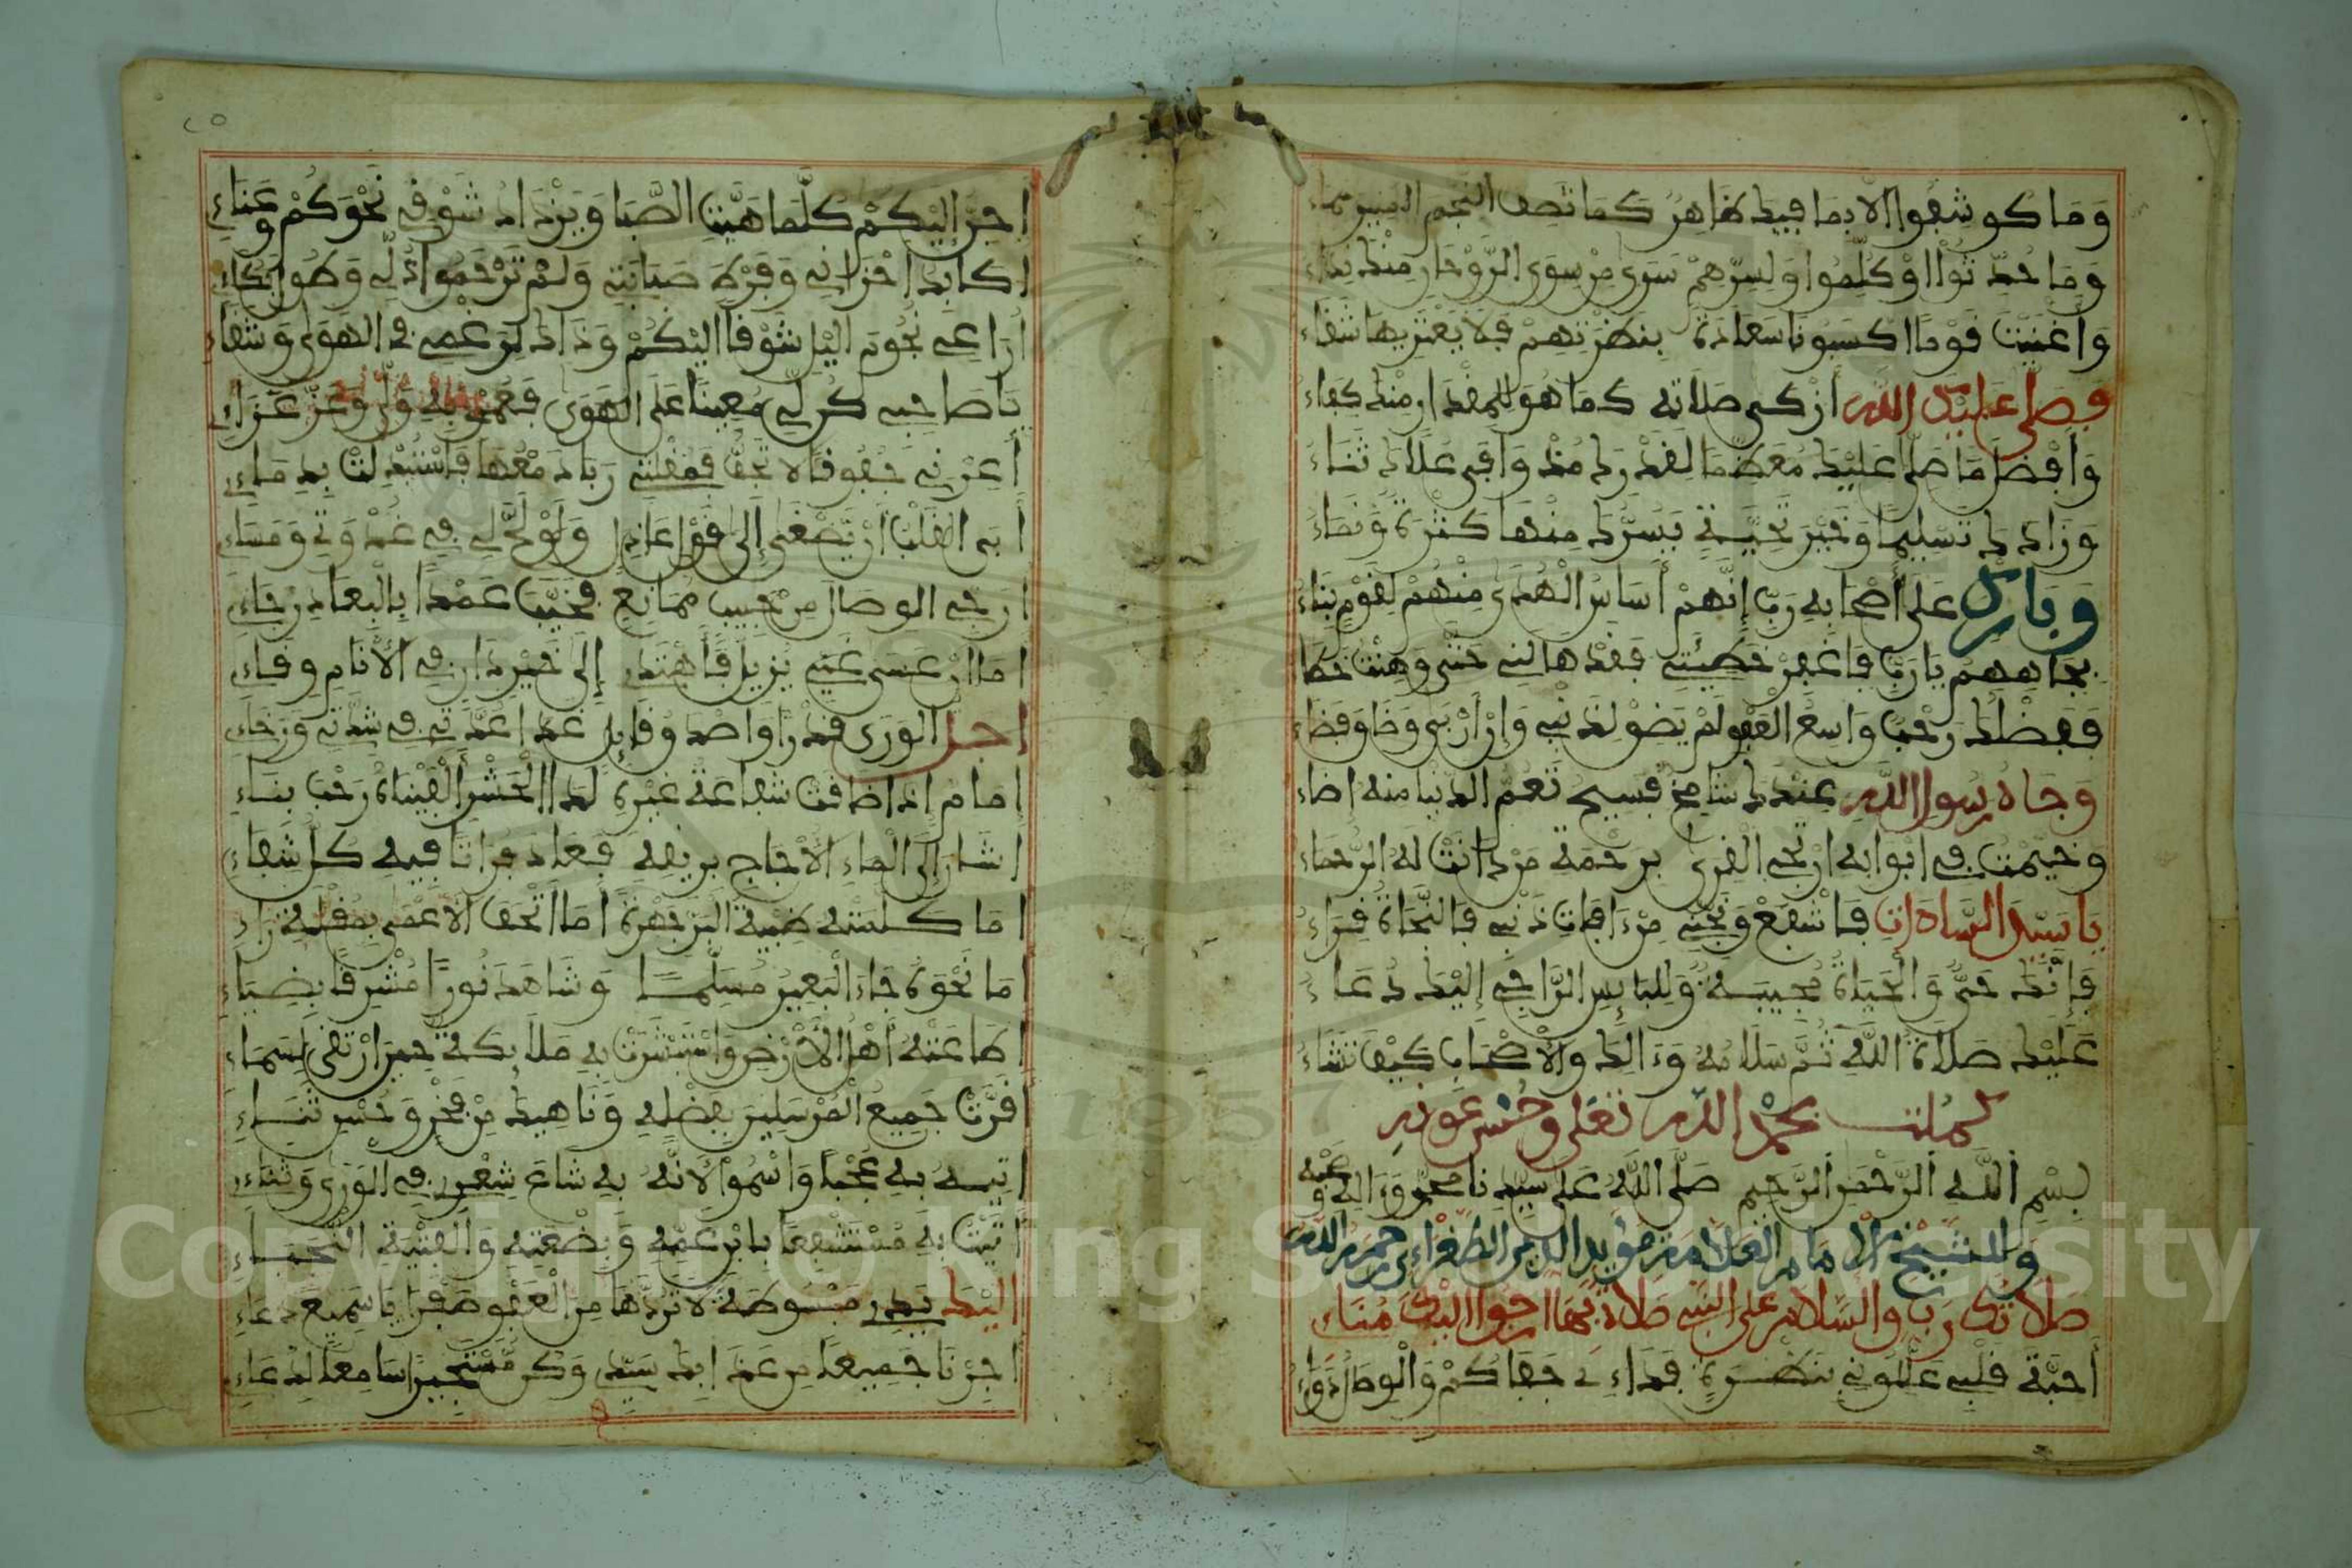 وَمَا كوشفوا إلا بما فيك ظاهرُ كما تصف النجم المنير سماءُ
وَمَا حُدِّثوا أوْ كُلِّموا وَلسرّهمْ سَوَى مِن سِوَى الرَّوْحا منك نداءُ
وَأغنيتَ قوما اكسبونا سعادة بنظرتهم فلا يعتريها شقاءُ
فصلى عليك الله أزكى صلاته كما هو للمقدار منك كفاءُ
وَأفضل ما صلى عليك معظما لقدرك منه وافي علاك ثناءُ
وَزادك تسليما وَخير تحيةٍ يسرك منها كثرة وَنماءُ
وَبارك على أصحابه ربّ إنهمْ أساس الهدى منهم لقوم بناءُ
بجاههم يا ربّ فاغفر خطيئتي فقد هالني حتى وهنت خطاءُ
ففضلك رحب واسع العفو لم يضق لذنبي وإن أربى وضاق فضاءُ
وَجاه رسول الله عندك شامخ فسيح تعم الدنيا منه إضاءُ
وخيمت في أبوابه أرتجي القرى برحمة من دانت له الرحماءُ
يا سيد السادات فاشفع وَنجني مِن آفات ذنبي فالنجاة قراءُ
فإنك حيٌّ والحياة مجيبة وللبائس الراجي إليك دعاءُ
عليك صلاة الله ثم سلامه وآلك والأصحاب كيف تشاءُ
كملت بحمد الله تعالى وحسن عونه
بسم الله الرحمن الرحيم صلى الله على سيدنا محمد وآله وصحبه
وللشيخ الإمام العلامة مؤيد الدين الطغرائي رحمه الله
صلاتك رب والسلام على النبي صلاة بها أرجو البلوغ مُنَاءِ
أحبّة قلبي عللوني بنظرةٍ فداءي جفاكم والوصال دواءِ
٢٥
أحنّ إليكم كلما هبّت الصّبا ويزداد شوقي نحوكم وعناءِ
أكابد أحزاني وفرط صبابتي ولم ترحموا ذلّي وطول بكاءِ
أراعي نجوم اليل شوقا إليكم وذاك لرغمي في الهوى وشقاءِ
يا صاحبي كن لي معينا على الهوى فهمّي به ولّى وعزّ عزاءِ
أعرني جفونا لا تجفّ فمقلتي ربا دمعها فاستبدلت بدماءِ
أبى القلب أن يصغى إلى قول عاذل ولو لجّ لي في غدوتي ومساءِ
أرجي الوصال من حبيب ممانع فخيّب عمدا بالبعاد رجاءِ
أما آن عسى غيّي يزيل فأهتدي إلى خير دان في الأنام وفاءِ
أجل الورى قدرا وأصدق قابل غدا عمدتي في شدتي ورخاءِ
إمام إذا ضاقت شفاعة غيره لدا الحشر ألفيناه رحب بناءِ
أشار إلى الماء الأجاج بريقه فعاد فراتا فيه كل شفاءِ
أما كلمته ظبية البر جهرة أما اتحف الأعمى بمقلة راءِ
أما نحوه جاء البعير مسلّما وشاهد نورا مشرقا بضياءِ
أطاعته أهل الأرض واستبشرت به ملائكة حين ارتقى لسماءِ
أقرّت جميع المرسلين بفضله وناهيك من فخر وحسن ثناءِ
أتيه به عجبا وأسموا لأنه به شاع شعري في الورى وثناءي
أتيت به مستشفعا بابن عمّه وبضعته والفتية النجباءِ
إليك يدي مبسوطة لا تردّها من العفو صفرا يا سميع دعاءِ
أجرنا جميعا من عذابك سيدي وكن مستجيبا سامعا لدعاءِ